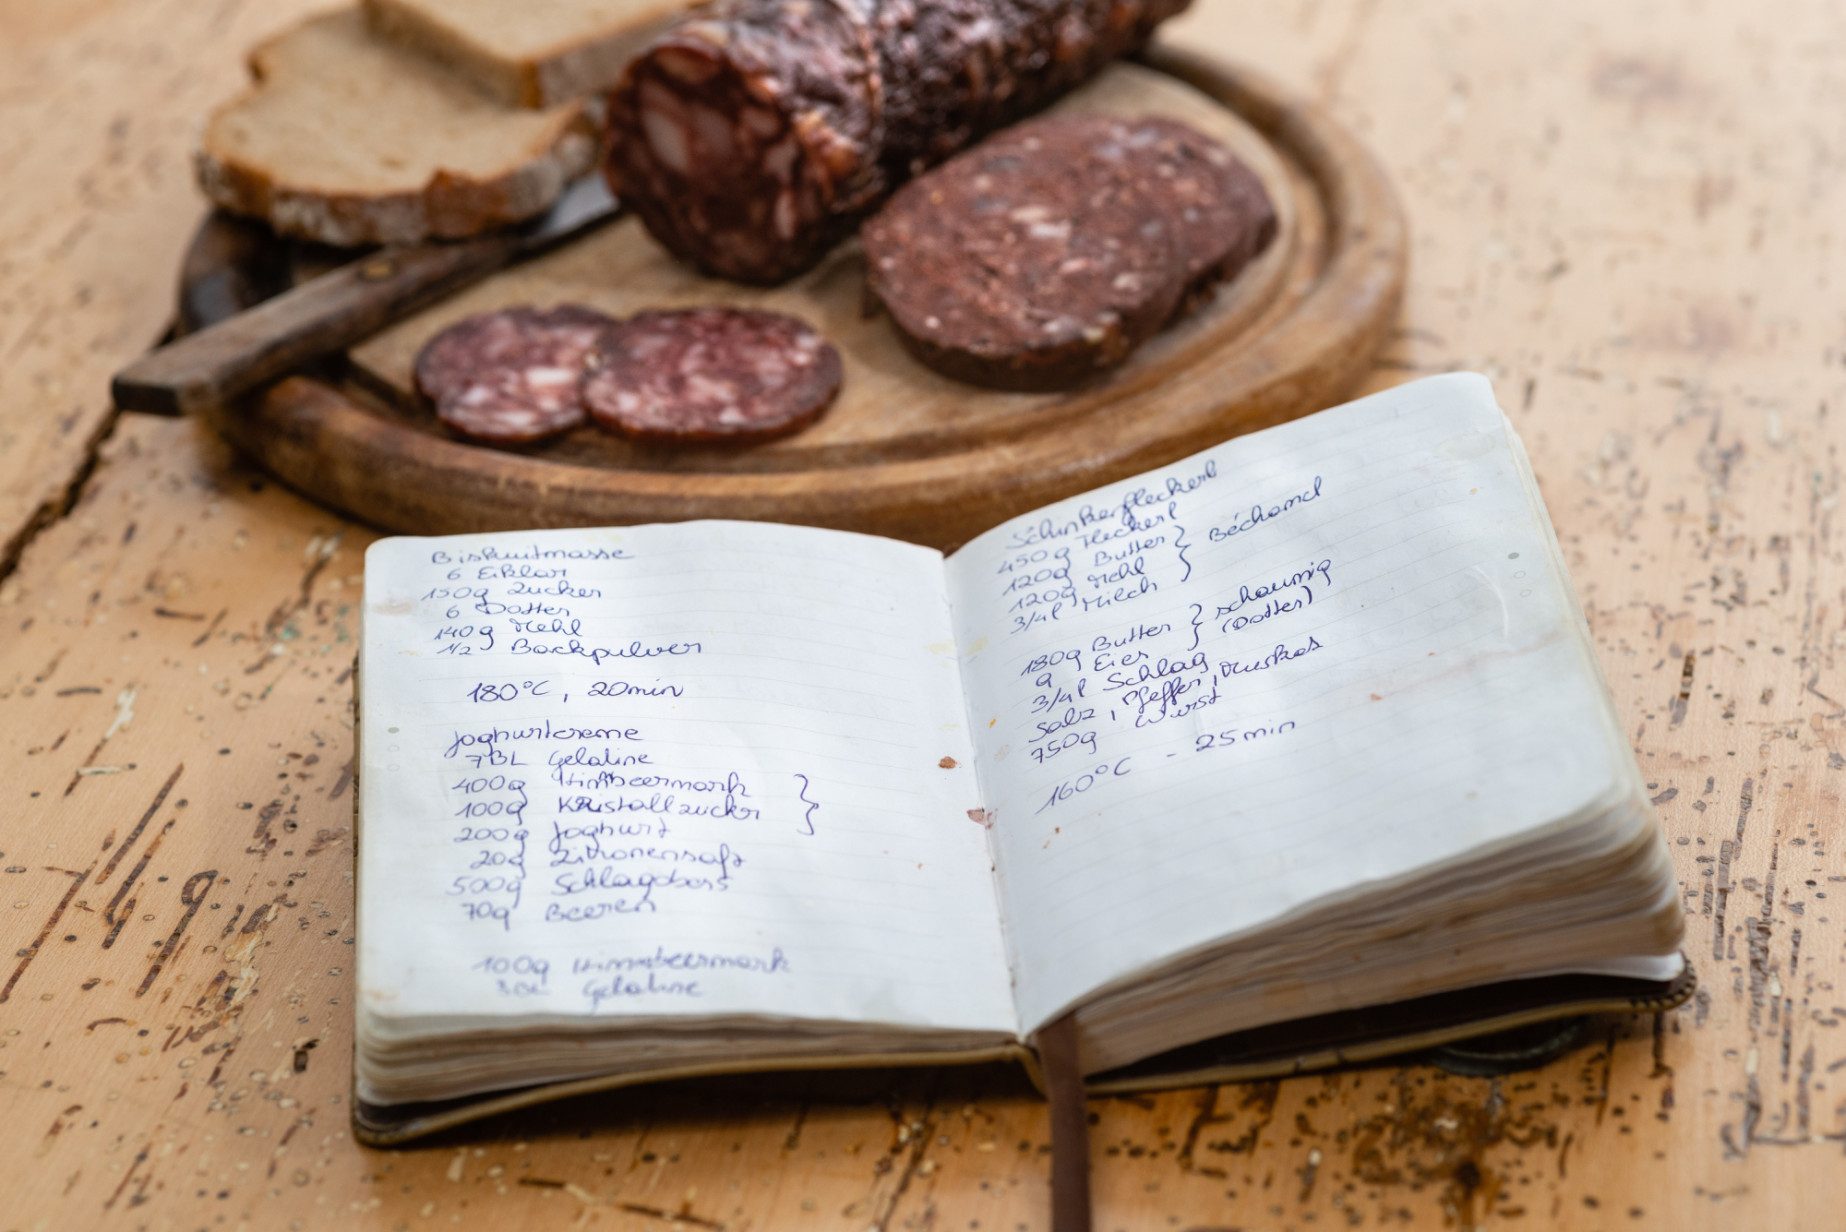 Biskuitmasse
6 Eiklar
150g Zucker
6 Dotter
140g Mehl
1/2 Backpulver
180°C, 20min
Joghurtcreme
7BL Gelatine
400g Himbeermark }
100g Kristallzucker
200g Joghurt
20g Zitronensaft
500g Schlagobers
70g Beeren
100g Himmbeermark
3BL Gelatine
Schinkenfleckerl
450g Fleckerl
120g Butter } Béchamel
120g Mehl
3/4l Milch
180g Butter } schaumig
9 Eier (Dotter)
3/4l Schlag
Salz, Pfeffer, Muskat
750g Wurst
160°C - 25min